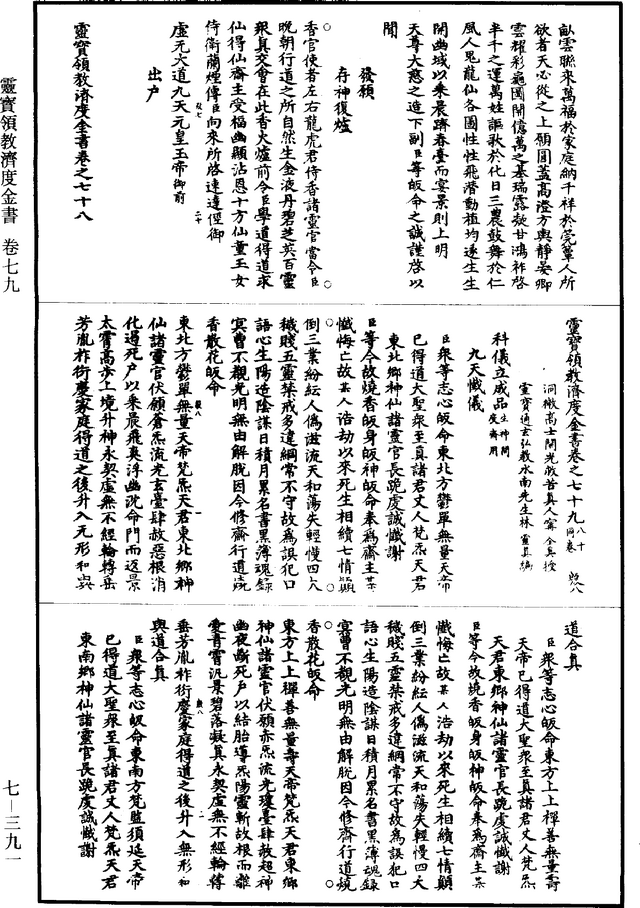 靈寶領教濟度金書 卷七九
七—三九一
畝雲聯來萬福於家庭納千祥於筦簟人所
欲者天心從之上願圓蓋高澄方輿靜晏卿
雲耀彩龜圖闡億萬之基瑞露凝甘鴻祚啓
半千之運萬姓謳歌於化日三農鼓舞於仁
風人鬼龍仙各圖性性飛潛動植均遂生生
開幽域以來晨躋春臺而宴景則上明
天尊大慈之造下副臣等皈命之誠謹啓以
聞
發願
存神復爐
香官使者左右龍虎君侍香諸靈官當令臣
晚朝行道之所自然生金液丹碧芝英百靈
衆真交會在此香火爐前令臣學道得道求
仙得仙齋主受福幽顯沾恩十方仙童玉女
侍衛蘭煙傳臣向來所啓速達徑御
虛无大道九天元皇玉帝御前
出戶
靈寶領教濟度金書卷之七十八
靈寶領教濟度金書卷之七十九
洞微高士開光救苦真人甯全真授
靈寶通玄弘教水南先生林靈真編
科儀立成品
九天懺儀
臣衆等志心皈命東北方鬱單無量天帝
已得道大聖衆至真諸君丈人梵炁天君
東北鄉神仙諸靈官長跪虔誠懺謝
臣等今故燒香皈身皈神皈命奉爲齋主某
懺悔亡故某人浩劫以來死生相續七情顛
倒三業紛紜人僞滋流天和蕩失輕慢四大
穢賤五靈禁戒多違綱常不守故爲誤犯口
語心生陽造陰謀日積月累名書黑簿魂錄
冥曹不覩光明無由解脫因今修齋行道燒
香散花皈命
東北方鬱單無量天帝梵炁天君東北鄉神
仙諸靈官伏願蒼炁流光玄臺肆赦惡根消
化過死戶以來晨飛爽浮幽詵命門而返景
太霄高步上境升神永契虛無不經輪轉垂
芳胤祚衍慶家庭得道之後升入元形和與
道合真
臣衆等志心皈命東方上上禪善無量壽
天帝已得道大聖衆至真諸君丈人梵炁
天君東鄉神仙諸靈官長跪虔誠懺謝
臣等今故燒香皈身皈神皈命奉爲齋主某
懺悔亡故某人浩劫以來死生相續七情顛
倒三業紛紜人僞滋流天和蕩失輕慢四大
穢賤五靈禁戒多違綱常不守故爲誤犯口
語心生陽造陰謀日積月累名書黑簿魂錄
冥曹不覩光明無由解脫因今修齋行道燒
香散花皈命
東方上上禪善無量壽天帝梵炁天君東鄉
神仙諸靈官伏願赤炁流光瓊臺肆赦超神
幽夜斷死戶以結胎導炁陽靈斬故根而離
愛青霄汎景碧落凝真永契虛無不經輪轉
垂芳胤祚衍慶家庭得道之後升入無形和
與道合真
臣衆等志心皈命東南方梵監須延天帝
已得道大聖衆至真諸君丈人梵炁天君
東南鄉神仙諸靈官長跪虔誠懺謝